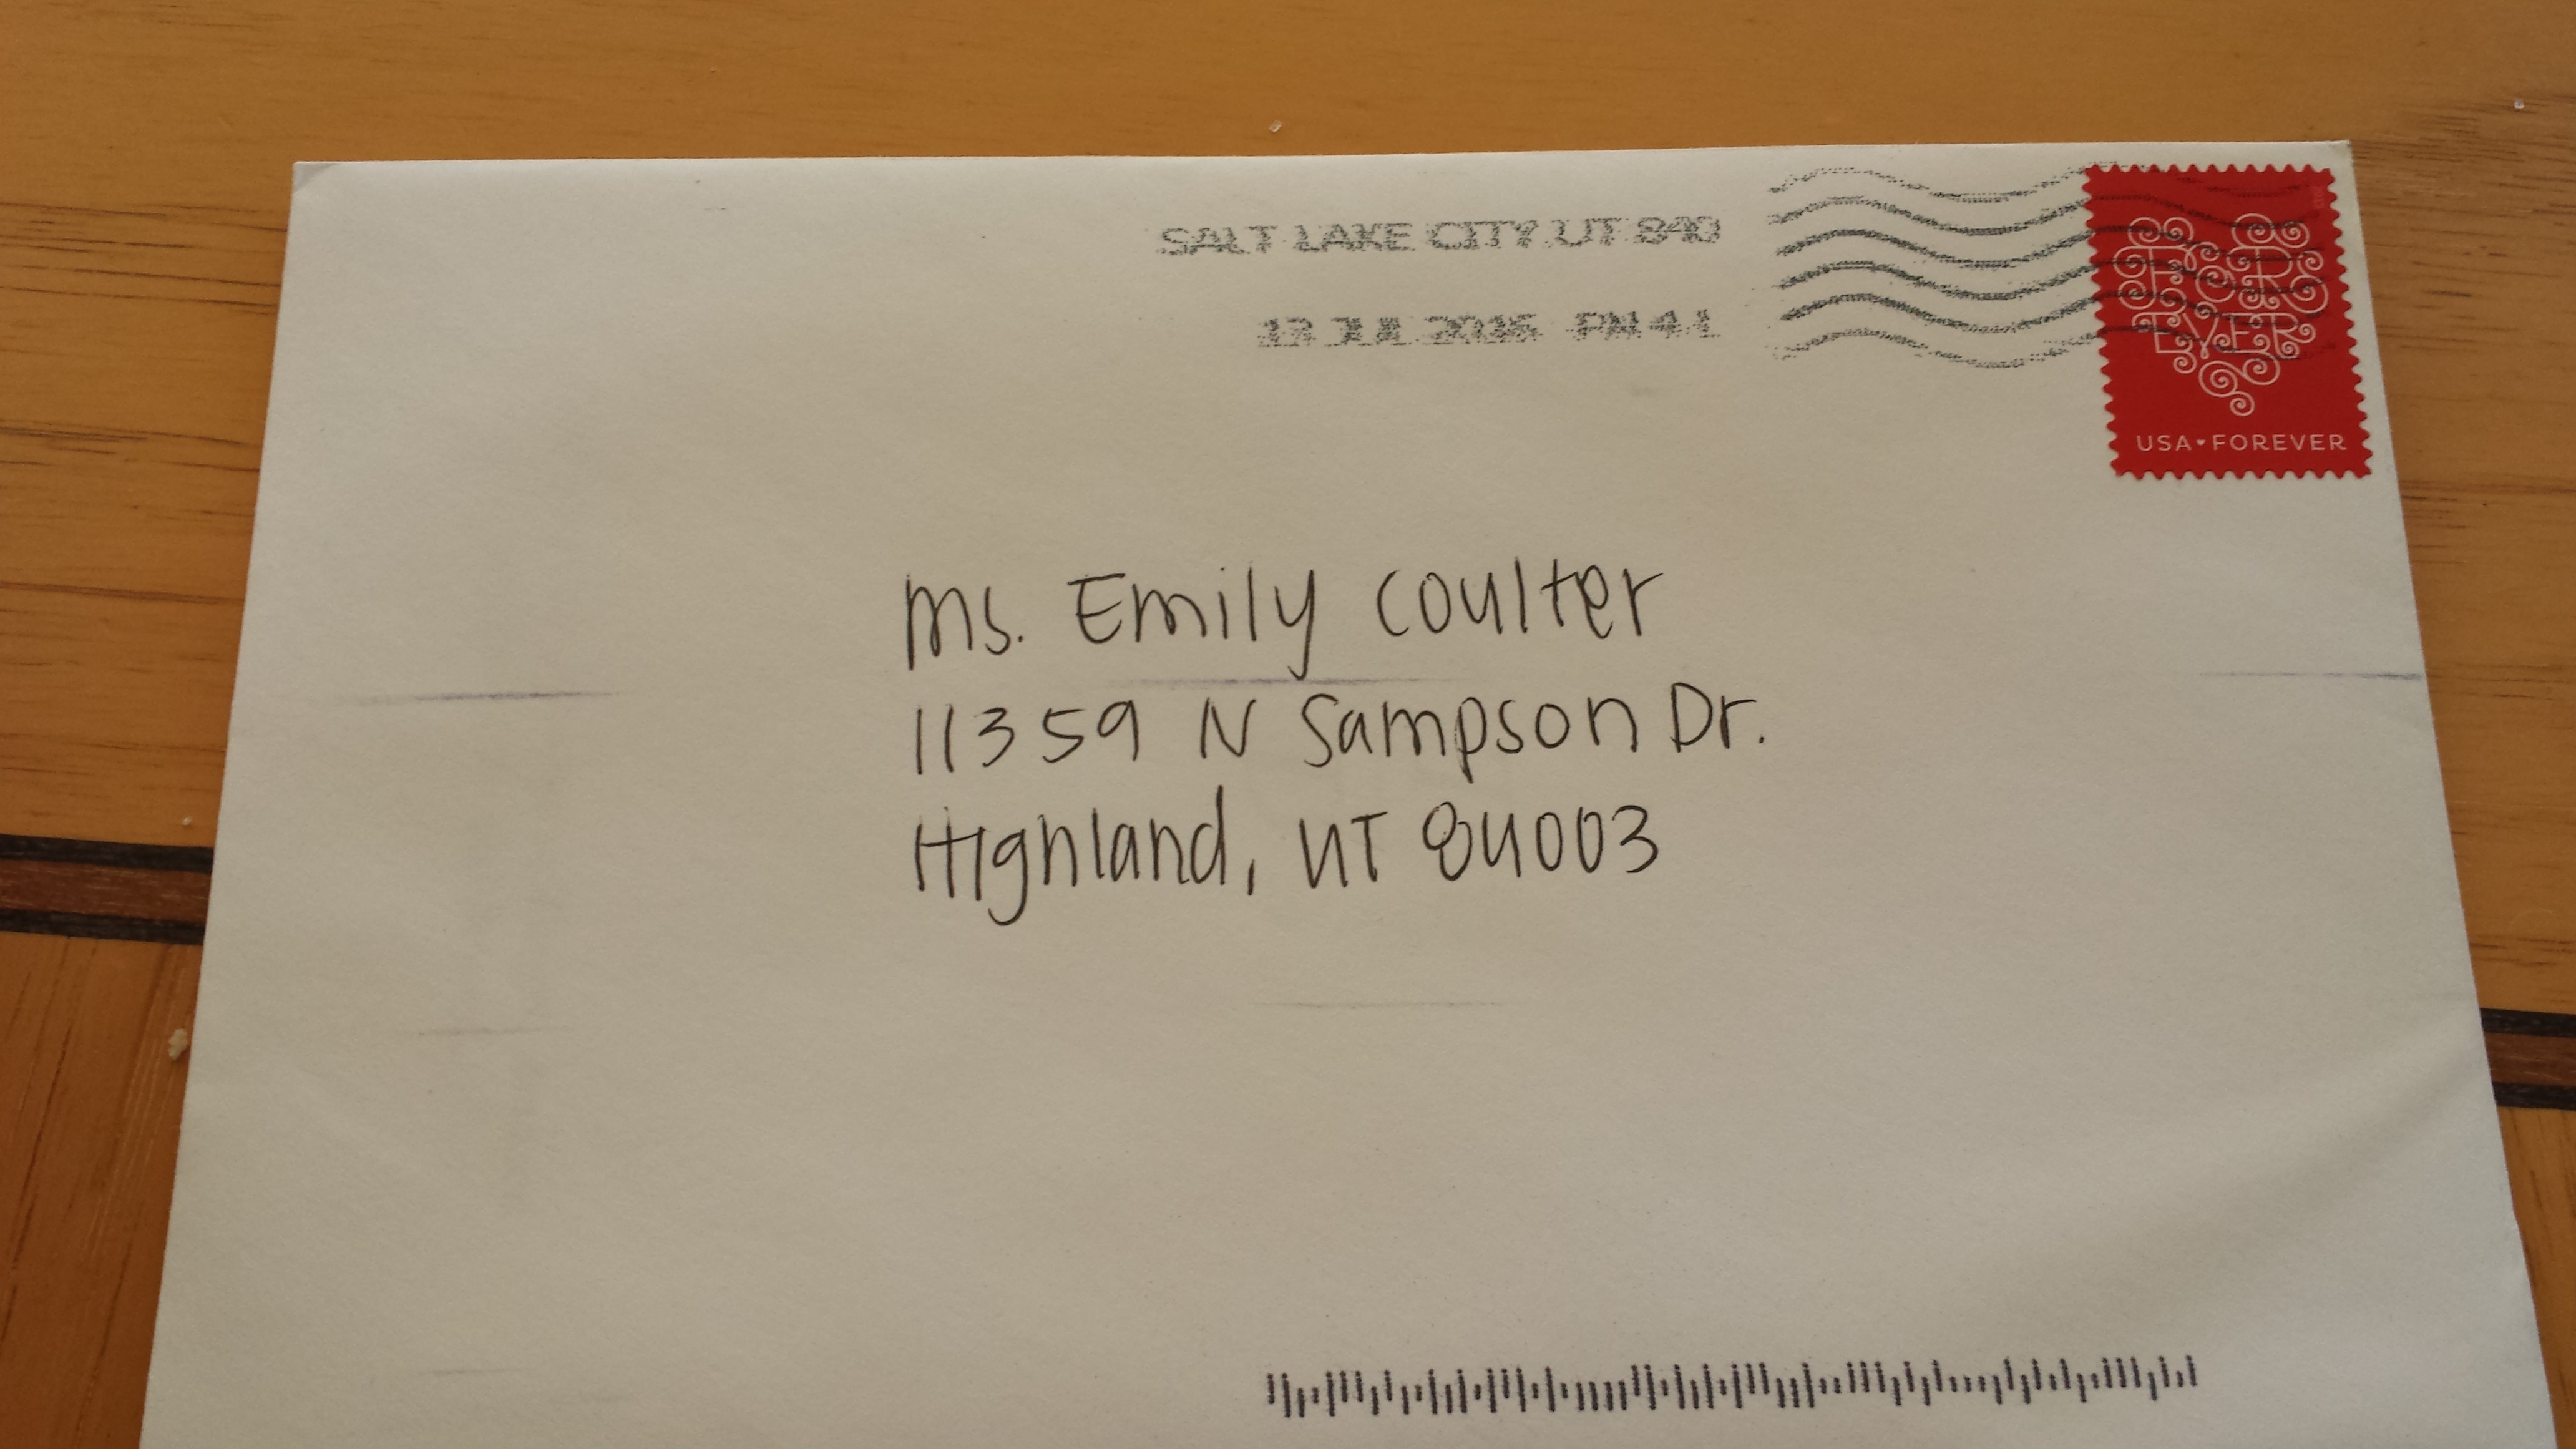 SALT LAKE CITY UT 840
13 JUL 2015 PM 4 L
FOR
EVER
USA FOREVER
Ms. Emily Coulter
11359 N Sampson Dr.
Highland, UT 84003